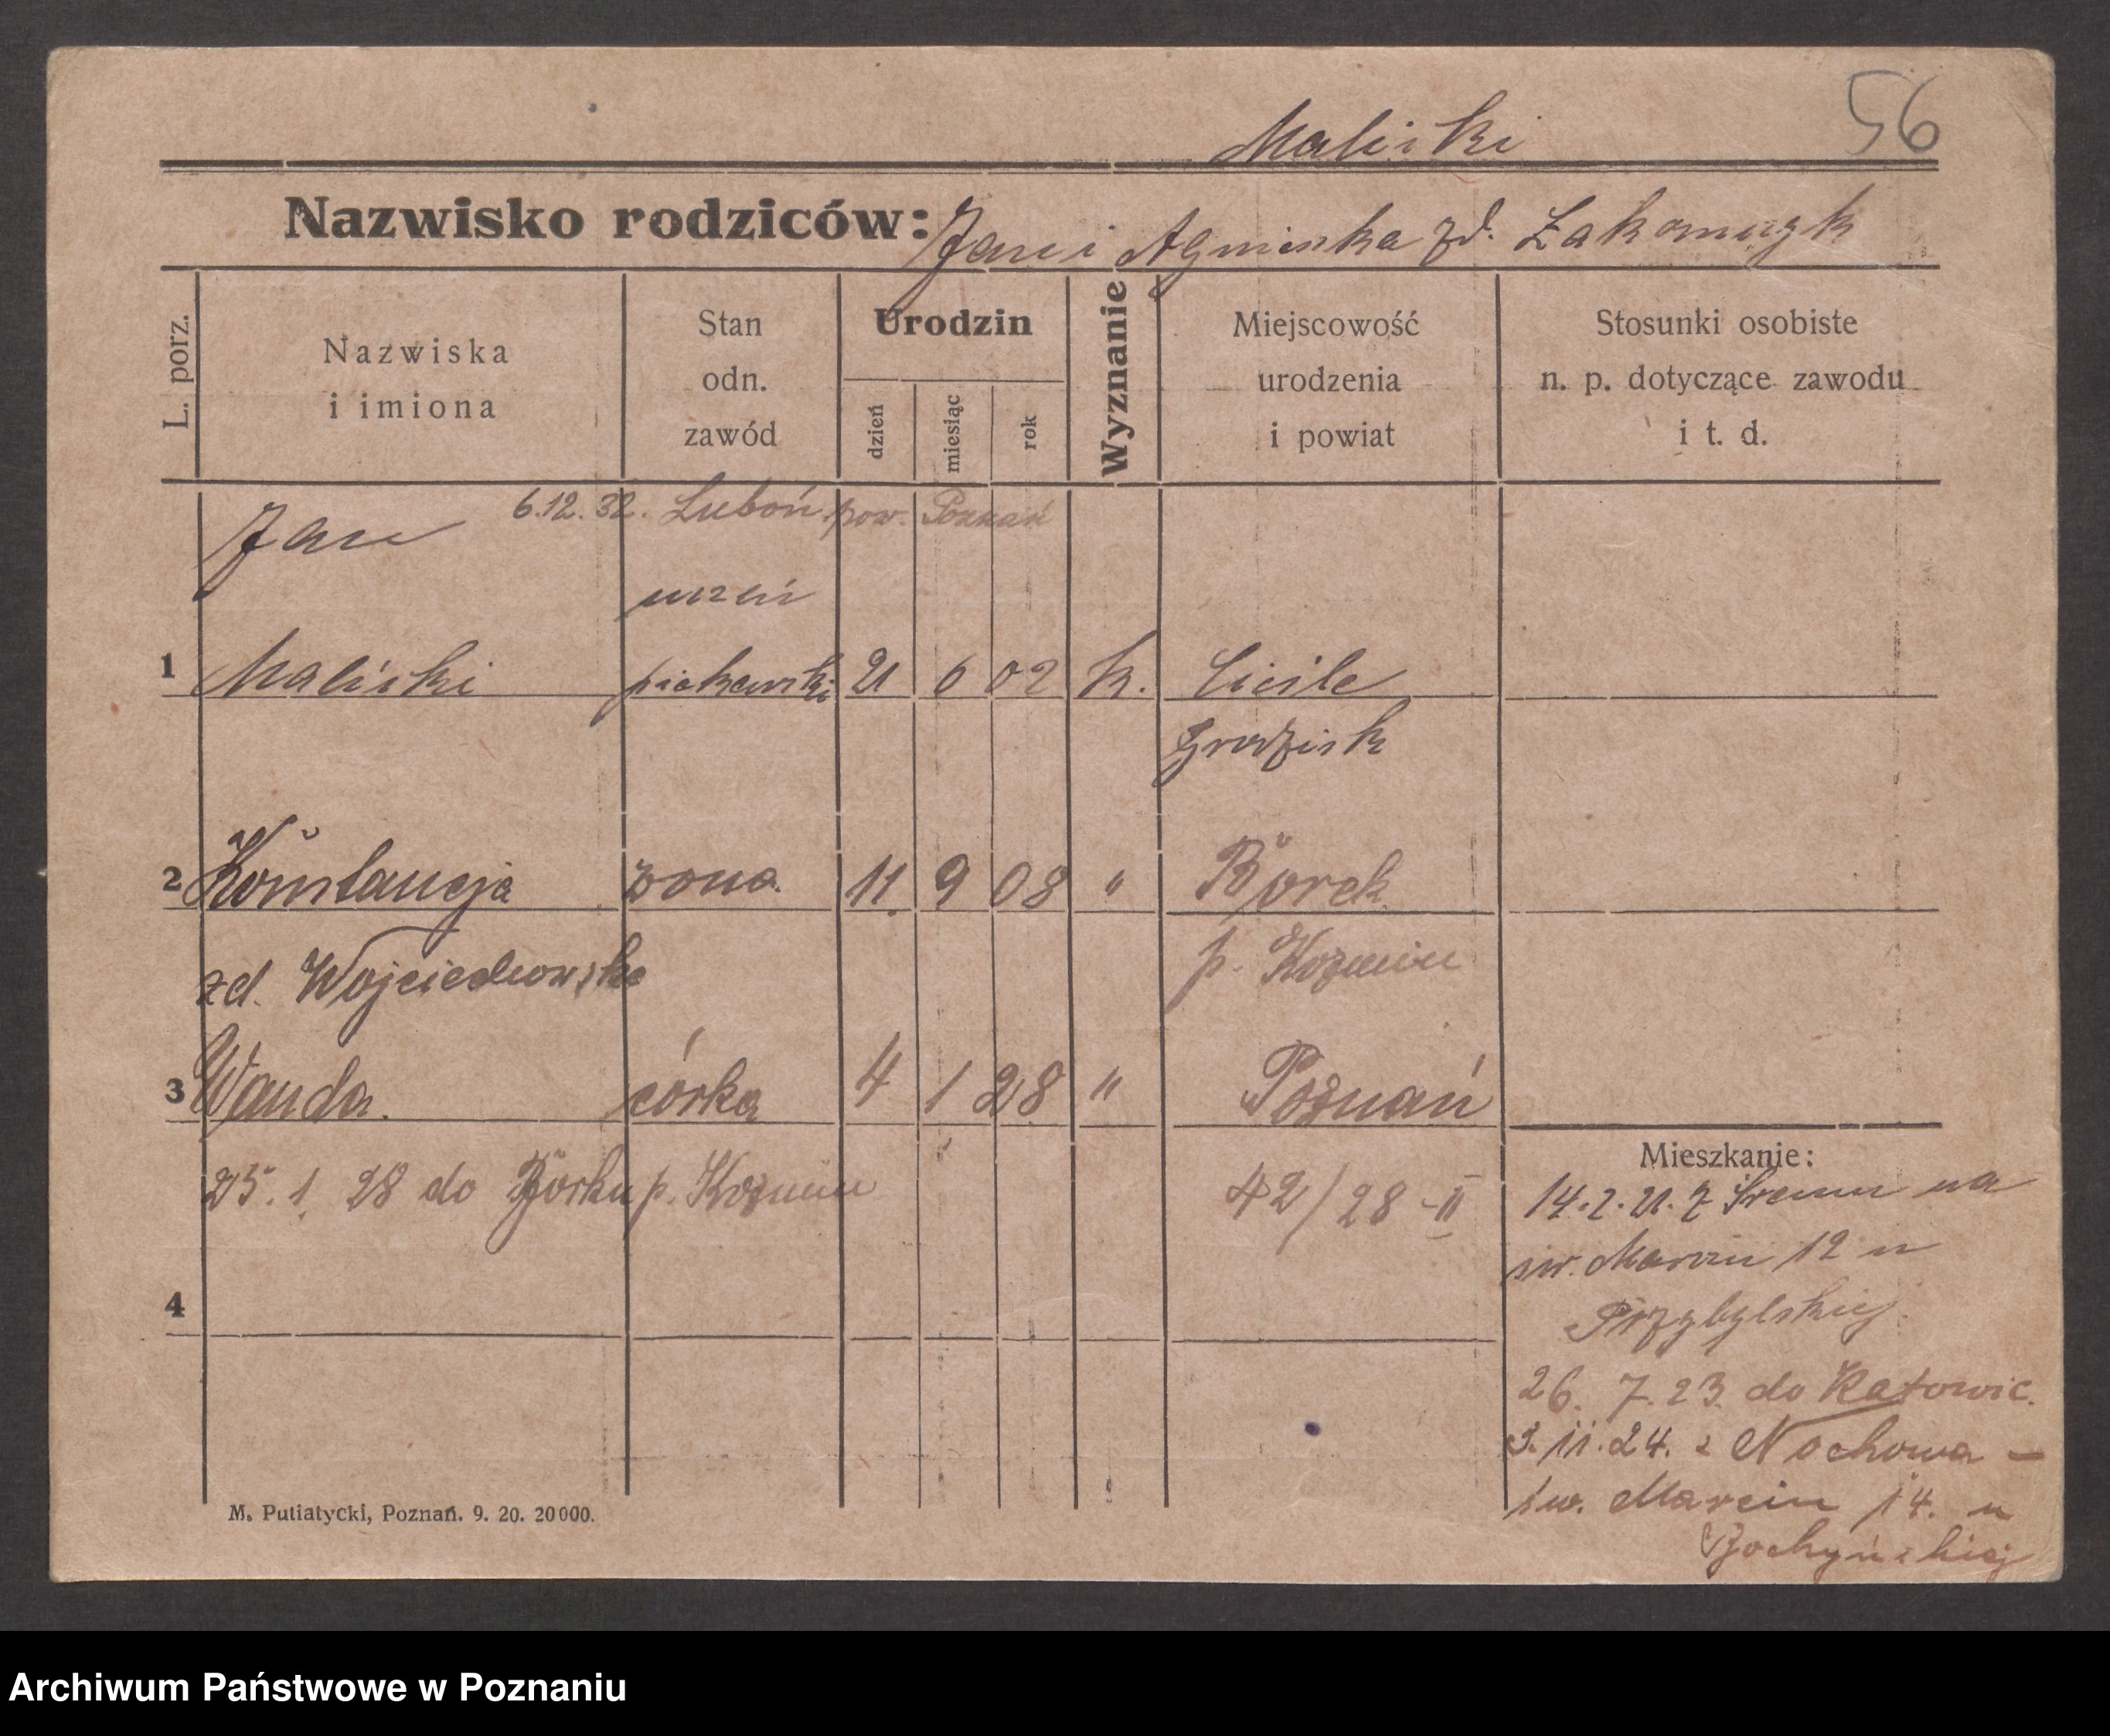 56
Maliski
Nazwisko rodziców: Jan i Agnieszka zd. Łakomczyk
L. porz.
Nazwiska
i imiona
Stan
odn.
zawód
Urodzin
dzień
miesiąc
rok
Wyznanie
Miejscowość
urodzenia
i powiat
Stosunki osobiste
n. p. dotyczące zawodu
i t. d.
Jan 6.12.32. Luboń pow. Poznań
uczeń
1 Maliski piekarski 21 6 02 k.
Grodzisk
2 Konstancja żona 11 9 08 " Borek
zd. Wojciechowska p. Koźmin
3 Wanda. córka 4 1 28 " Poznań
25. 1. 28 do Borku p. Koźmin 42/28-II
4
Mieszkanie:
14.2.21. z Śremu na
św. Marcin 12 u
Przybylskiej
26. 7. 23. do Katowic.
3.11.24. z Nochowa -
św. Marcin 14. u
M. Putiatycki, Poznań. 9. 20. 20000.
Archiwum Państwowe w Poznaniu